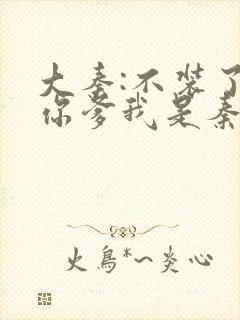 大秦:不装了
你爹我是秦
火鳥*~炎心